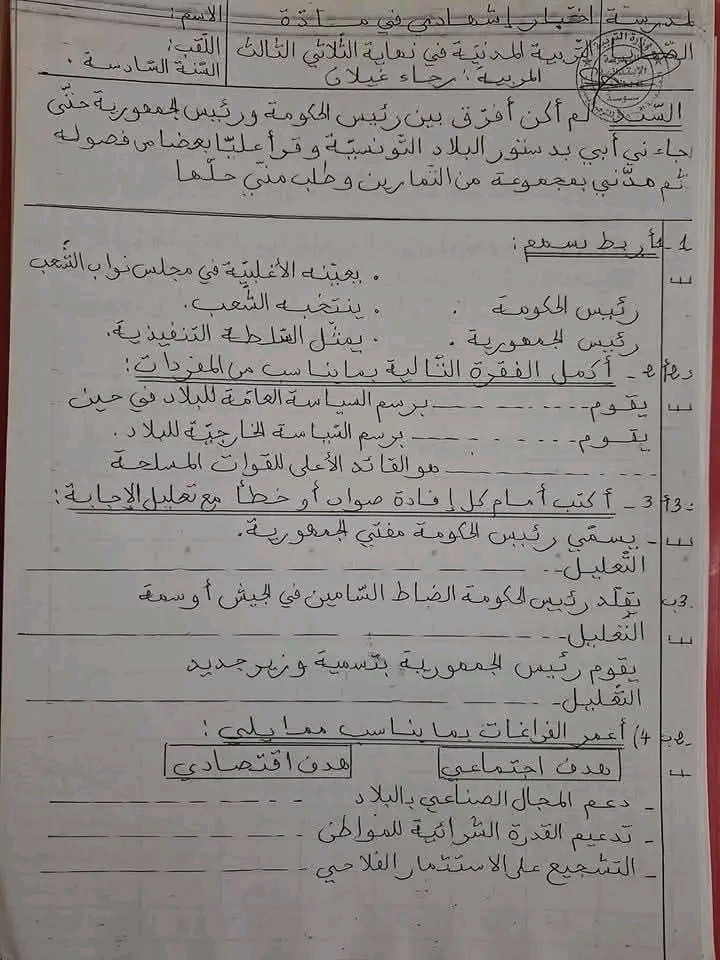 مدرسة
اختبار إشهادي في مادّة
التربية المدنيّة في نهاية الثّلاثي الثالث
المربية: رجاء غيلان
الاسم:
اللّقب:
السّنة السّادسة.
السّند لم أكن أفرّق بين رئيس الحكومة ورئيس الجمهورية حتّى
جاءني أبي بدستور البلاد التّونسيّة وقرأ عليّا بعضا من فصوله
ثم مدّني بمجموعة من التّمارين وطلب منّي حلّها
1- أربط بسهم:
. يعيّنه الأغلبيّة في مجلس نواب الشّعب
رئيس الحكومة . . ينتخبه الشّعب.
رئيس الجمهورية . . يمثّل السّلطة التنفيذية.
أكمل الفقرة التّالية بما يناسب من المفردات:
يقوم - - - - - - - برسم السياسة العامّة للبلاد في حين
يقوم - - - - - - - برسم السّياسة الخارجيّة للبلاد.
- - - - - - - هو القائد الأعلى للقوات المسلحة
3 - أكتب أمام كل إفادة صواب أو خطأ مع تعليل الإجابة:
- يسمّي رئيس الحكومة مفتي الجمهورية.
التّعليل - - - - - - - - - -
يقلّد رئيس الحكومة الضباط السّامين في الجيش أوسمة
التّعليل - - - - - - - - - -
يقوم رئيس الجمهورية بتسمية وزير جديد
التّعليل - - - - - - - - - -
4) أعمر الفراغات بما يناسب مما يلي:
هدف اجتماعي هدف اقتصادي
- دعم المجال الصناعي بالبلاد - - - - - - -
- تدعيم القدرة الشّرائية للمواطن - - - - - - -
- التشجيع على الاستثمار الفلاحي - - - - - - -